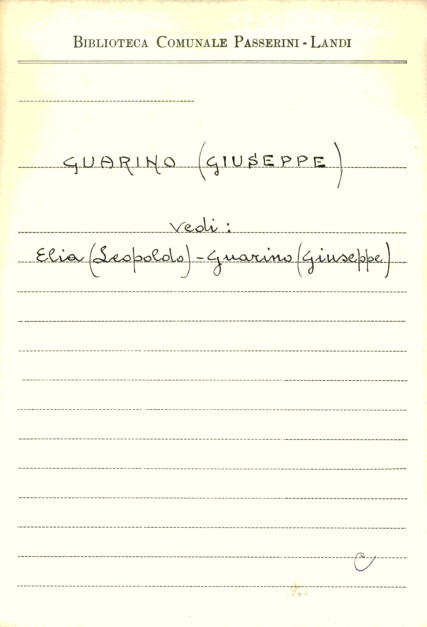 BIBLIOTECA COMUNALE PASSERINI - LANDI
GUARINO (GIUSEPPE)
Vedi :
Elia (Leopoldo) - Guarino (Giuseppe)
C